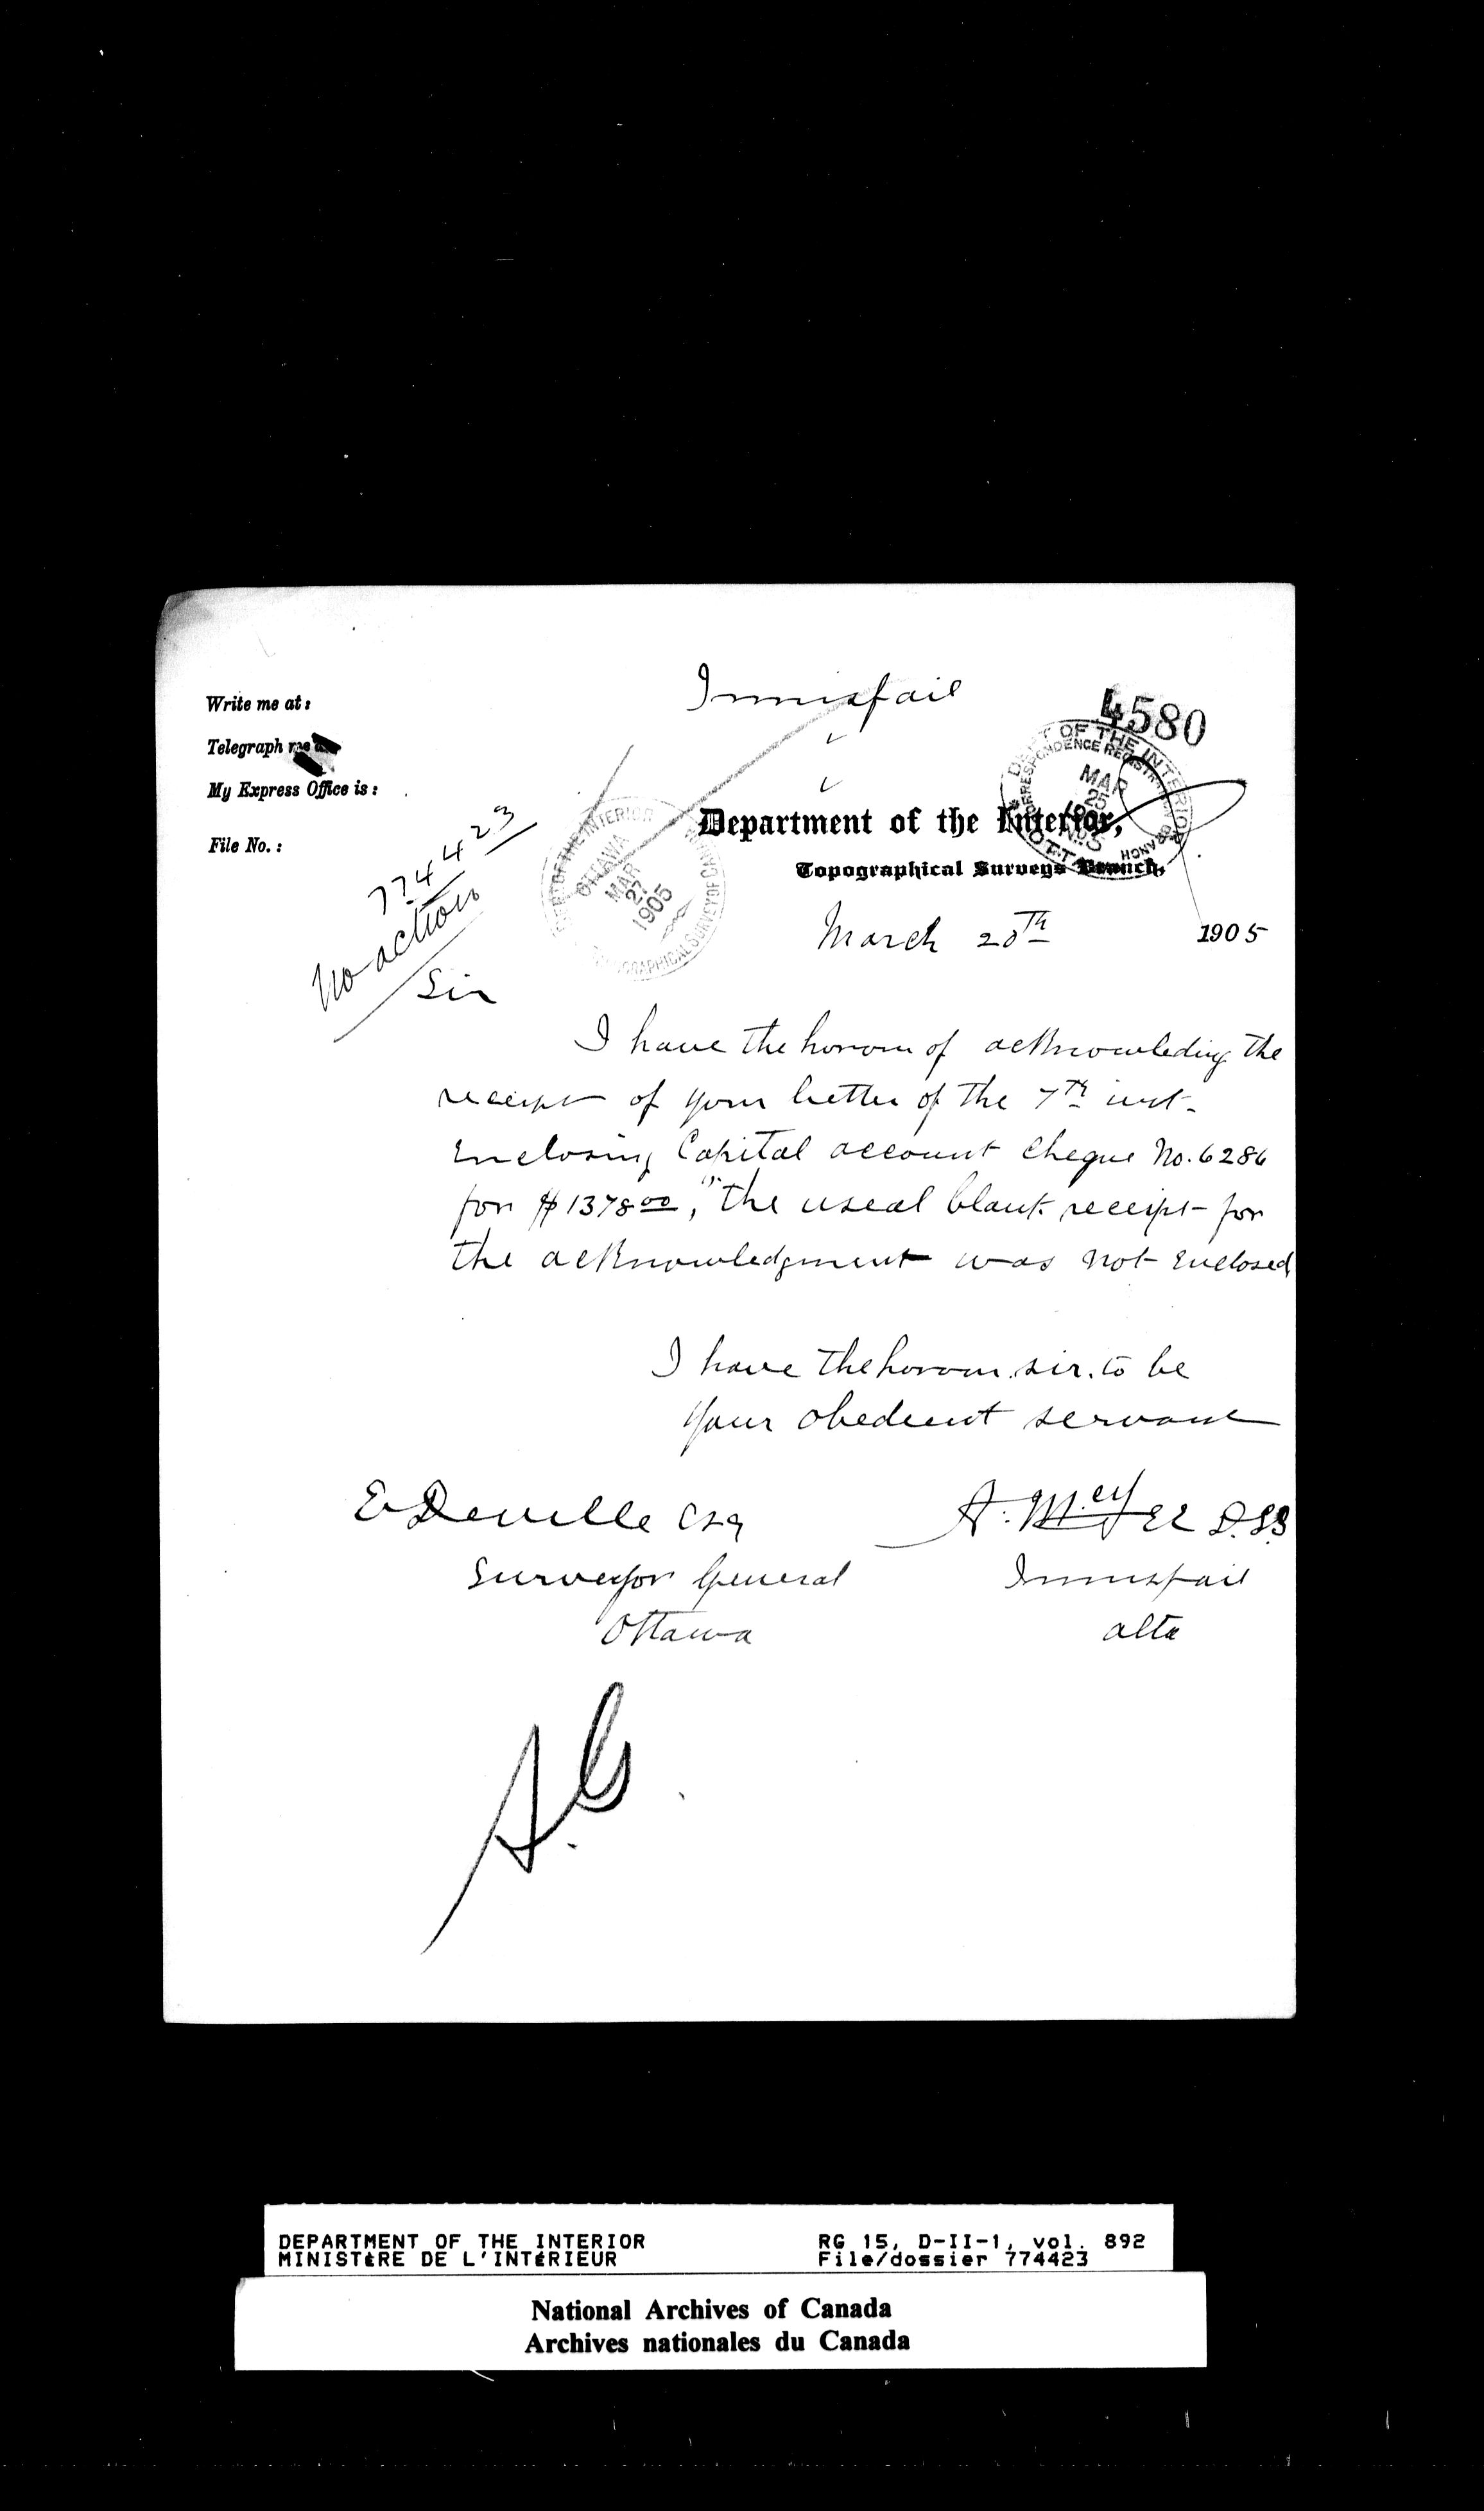 Innisfail
4580
Write me at:
Telegraph me at:
My Express Office is:
File No.:
774423
No action
DEPT OF THE INTERIOR
CORRESPONDENCE REGISTRATION BRANCH
MAR
25
1905
No. 5
OTTAWA
DEPT OF THE INTERIOR
OTTAWA
MAR
27
1905
TOPOGRAPHICAL SURVEY OF CANADA
Department of the Interior,
Topographical Surveys Branch,
March 20th 1905
Sir
I have the honour of acknowleding the
receipt of your letter of the 7th inst.
Enclosing Capital account cheque No. 6286
for $1378.00, "the useal blank receipt for
the acknowledgment was not enclosed
I have the honour. sir. to be
your obedient servant
E Deville Esq A. Meyer D.L.S
Surveyor General Innisfail
Ottawa alta
DEPARTMENT OF THE INTERIOR RG 15, D-II-1, vol. 892
MINISTÈRE DE L'INTÉRIEUR File/dossier 774423
National Archives of Canada
Archives nationales du Canada